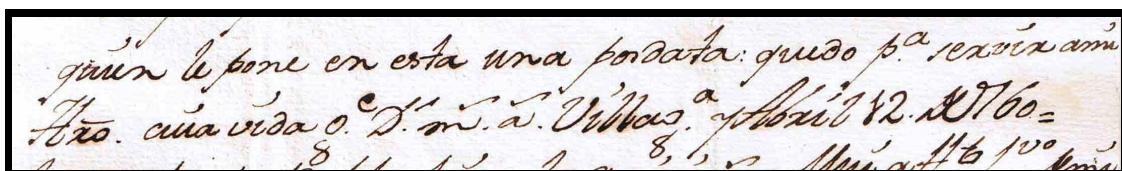 quien le pone en esta una posdata: quedo p.a servir a mi
Hro. cuia vida g.e D.s m.s a.s Villag.a y Abril 12. de 1760=